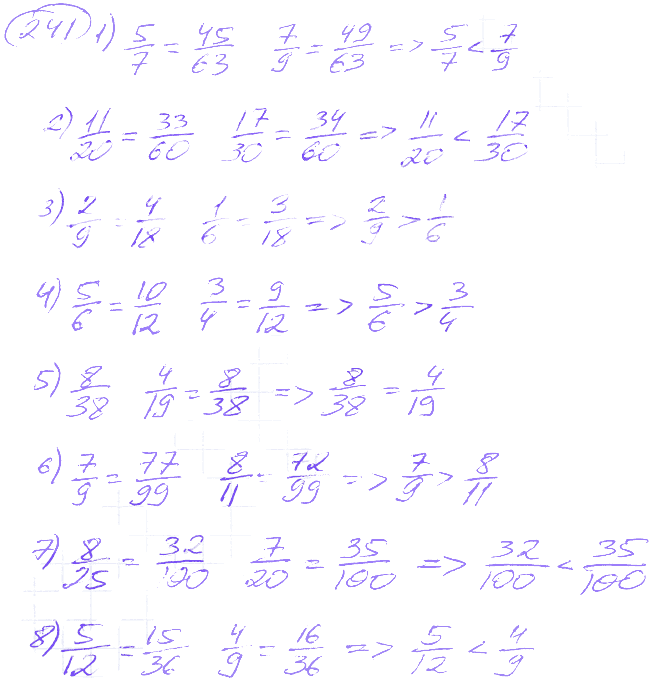 241 1) 5/7 = 45/63 7/9 = 49/63 => 5/7 < 7/9
2) 11/20 = 33/60 17/30 = 34/60 => 11/20 < 17/30
3) 2/9 = 4/18 1/6 = 3/18 => 2/9 > 1/6
4) 5/6 = 10/12 3/4 = 9/12 => 5/6 > 3/4
5) 8/38 4/19 = 8/38 => 8/38 = 4/19
6) 7/9 = 77/99 8/11 = 72/99 => 7/9 > 8/11
7) 8/25 = 32/100 7/20 = 35/100 => 32/100 < 35/100
8) 5/12 = 15/36 4/9 = 16/36 => 5/12 < 4/9